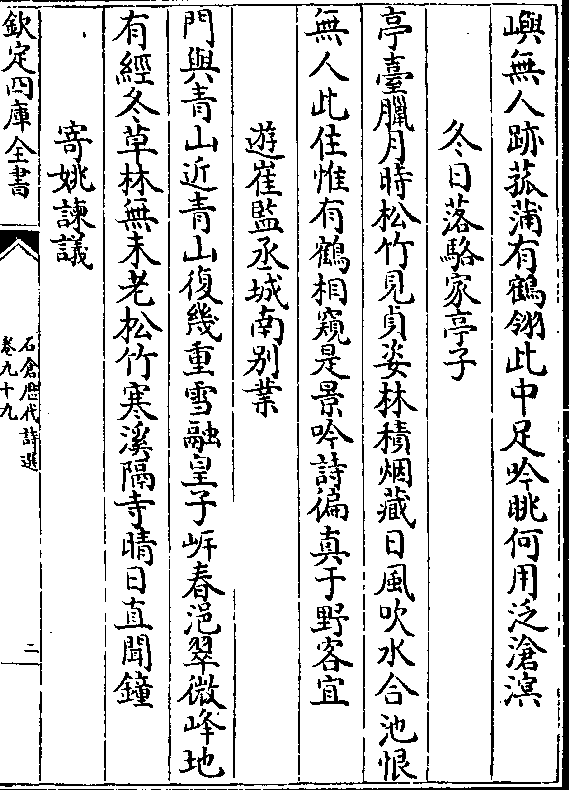 嶼無人跡菰蒲有鶴翎此中足吟眺何用泛滄溟
冬日落駱家亭子
亭臺臘月時松竹見貞姿林積烟藏日風吹水合池恨
無人此住惟有鶴相窺是景吟詩徧真于野客宜
遊崔監丞城南别業
門與青山近青山復幾重雪融皇子岍春浥翠微峰地
有經冬草林無未老松竹寒溪隔寺晴日直聞鐘
寄姚諫議
欽定四庫全書
石倉歴代詩選
卷九十九
二